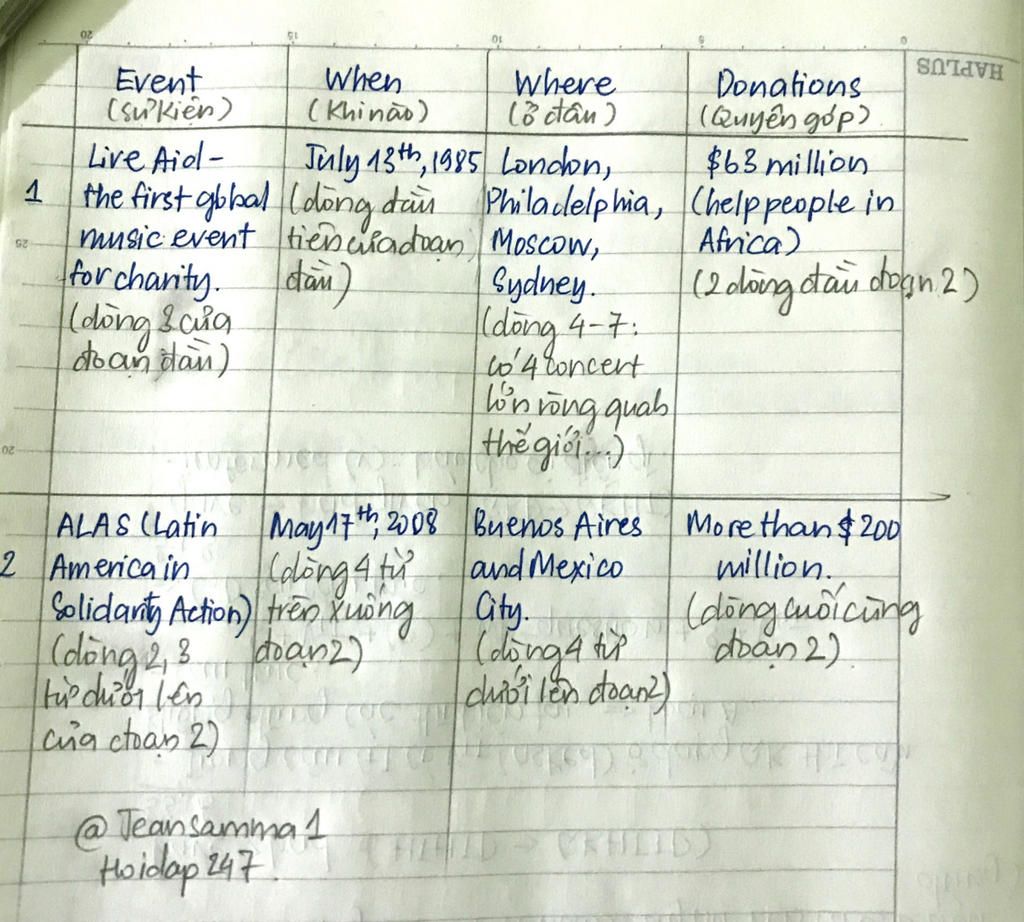 20 15 10 5 0
HAPLUS
Event When Where Donations
(Sự kiện) (Khi nào) (Ở đâu) (Quyên góp)
1
Live Aid -
the first global
music event
for charity.
(dòng 3 của
đoạn đầu)
July 13th, 1985
(dòng đầu
tiên của đoạn
đầu)
London,
Philadelphia,
Moscow,
Sydney.
(dòng 4-7:
có 4 concert
lớn vòng quah
thế giới...)
$63 million
(help people in
Africa)
(2 dòng đầu đoạn 2)
25
20
2
ALAS (Latin
America in
Solidarity Action)
(dòng 2, 3
từ dưới lên
của đoạn 2)
May 17th, 2008
(dòng 4 từ
trên xuống
đoạn 2)
Buenos Aires
and Mexico
City.
(dòng 4 từ
dưới lên đoạn 2)
More than $200
million.
(dòng cuối cùng
đoạn 2)
@Jeansamma1
Hoidap247.